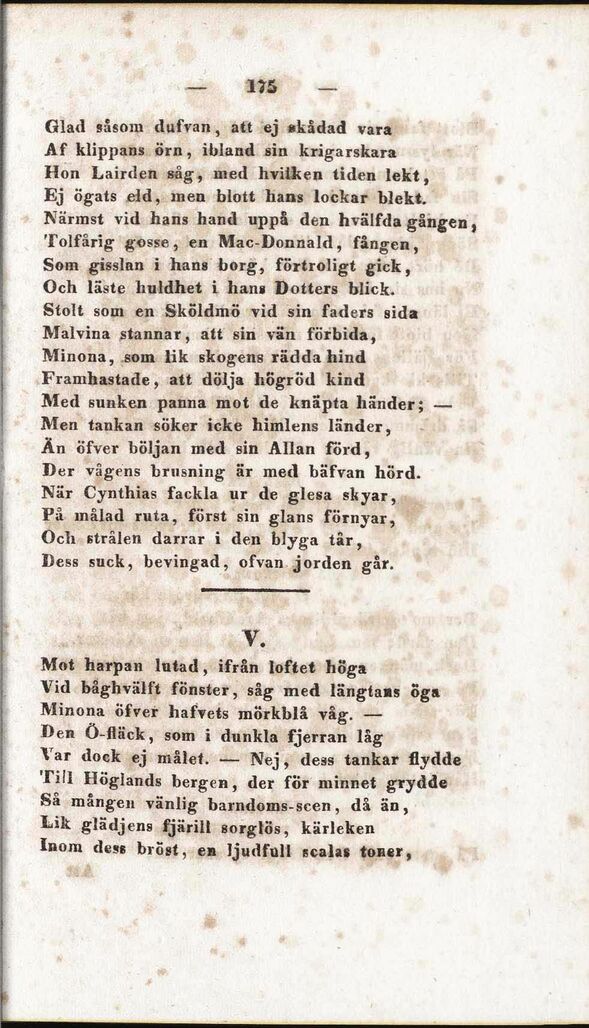 — 175 —
Glad såsom dufvan, att ej skådad vara
Af klippans örn, ibland sin krigarskara
Hon Lairden såg, med hvilken tiden lekt,
Ej ögats eld, men blott hans lockar blekt.
Närmst vid hans hand uppå den hvälfda gången,
Tolfårig gosse, en Mac-Donnald, fången,
Som gisslan i hans borg, förtroligt gick,
Och läste huldhet i hans Dotters blick.
Stolt som en Sköldmö vid sin faders sida
Malvina stannar, att sin vän förbida,
Minona, som lik skogens rädda hind
Framhastade, att dölja högröd kind
Med sunken panna mot de knäpta händer; —
Men tankan söker icke himlens länder,
Än öfver böljan med sin Allan förd,
Der vågens brusning är med bäfvan hörd.
När Cynthias fackla ur de glesa skyar,
På målad ruta, först sin glans förnyar,
Och strålen darrar i den blyga tår,
Dess suck, bevingad, ofvan jorden går.
V.
Mot harpan lutad, ifrån loftet höga
Vid båghvälft fönster, såg med längtans öga
Minona öfver hafvets mörkblå våg. —
Den Ö-fläck, som i dunkla fjerran låg
Var dock ej målet. — Nej, dess tankar flydde
Till Höglands bergen, der för minnet grydde
Så mången vänlig barndoms-scen, då än,
Lik glädjens fjärill sorglös, kärleken
Inom dess bröst, en ljudfull scalas toner,